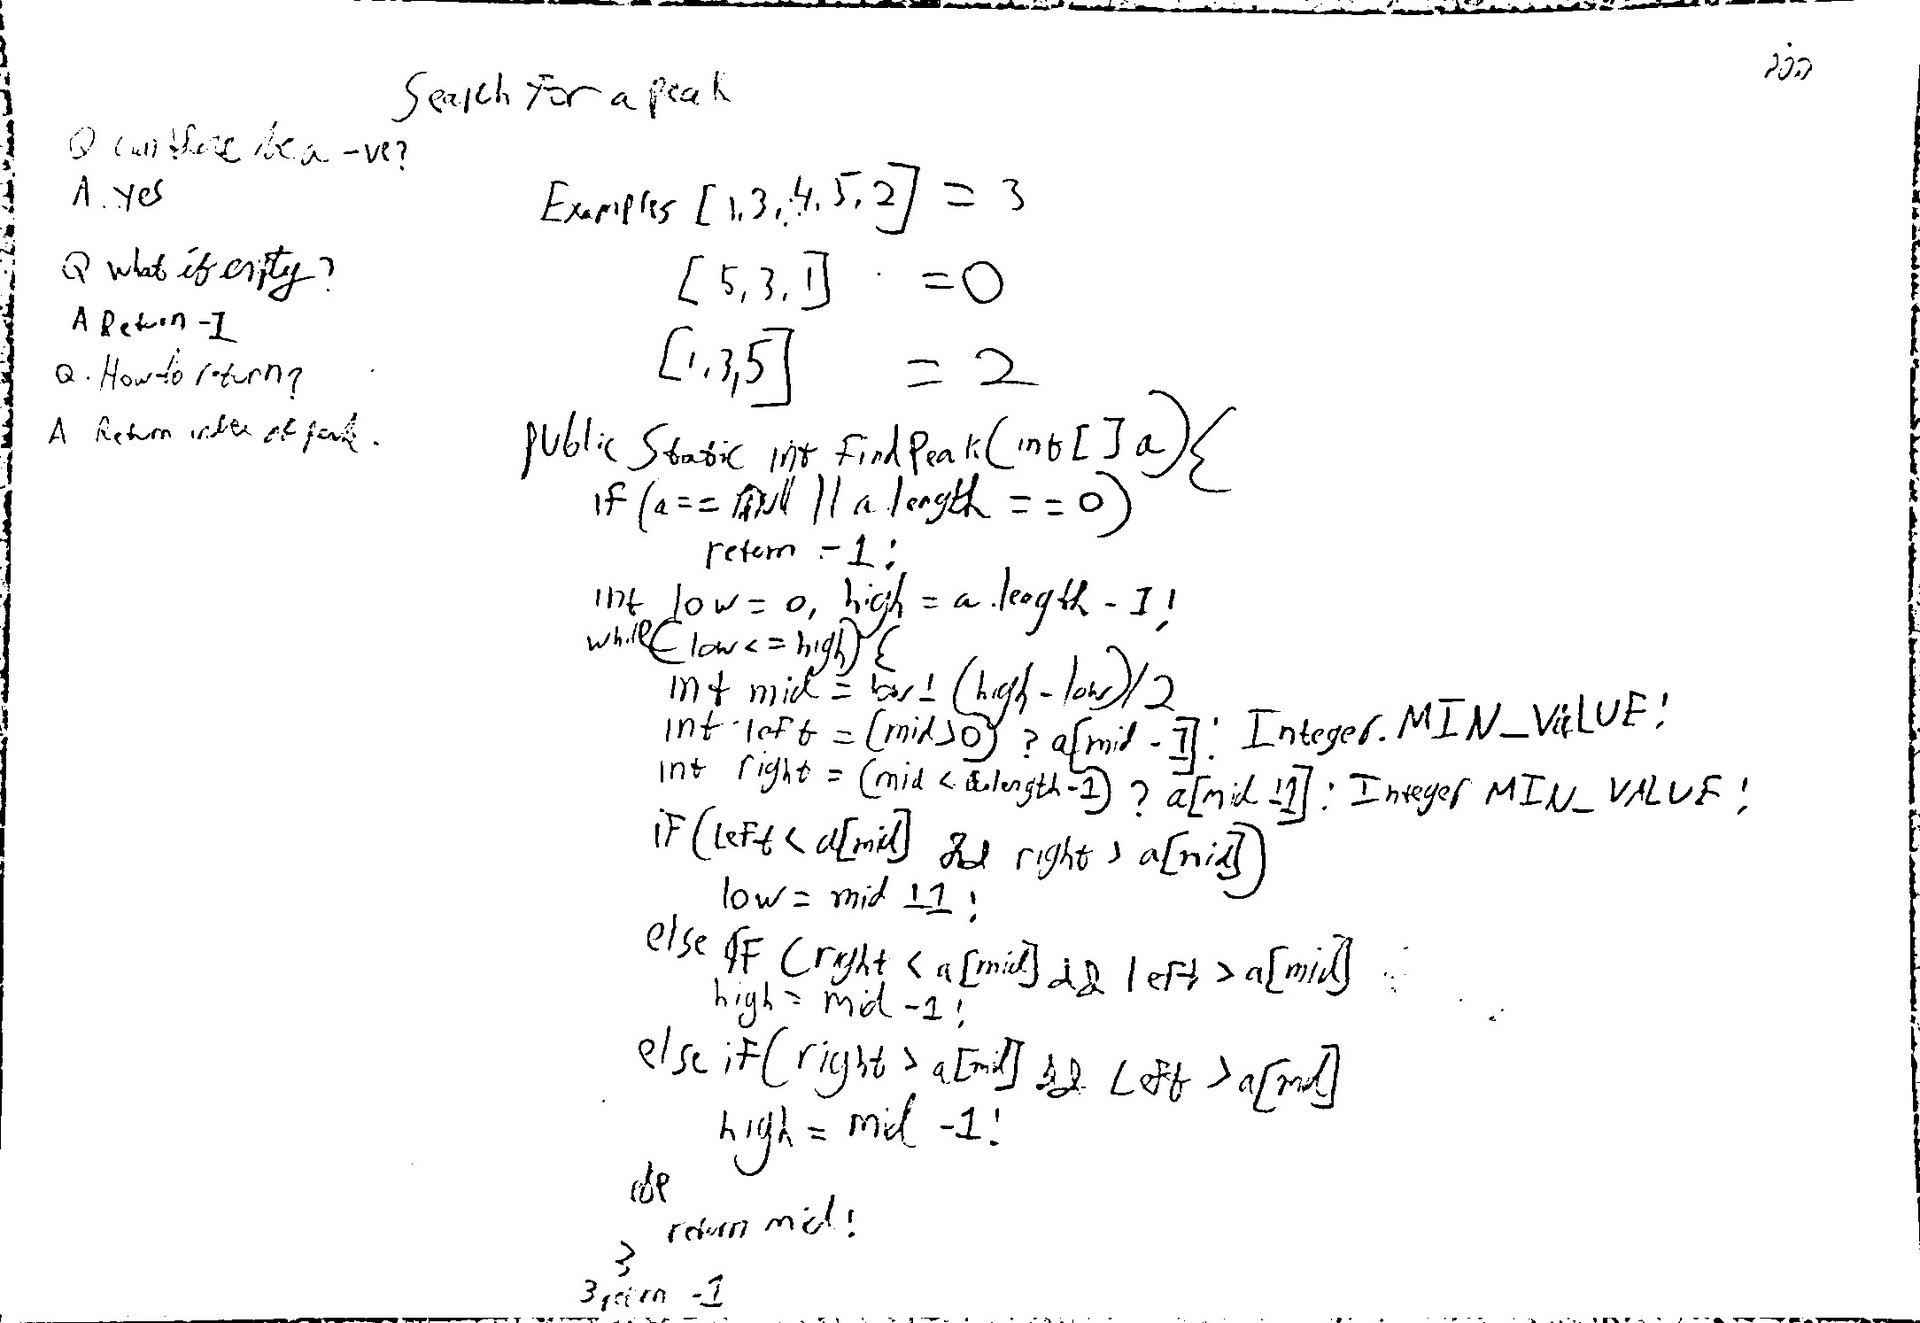 Search for a peak
Q can there be a -ve?
A. yes
Q what if empty?
A Return -1
Q. How to return?
A Return index of peak.
Examples [1,3,4,5,2] = 3
[5,3,1] = 0
[1,3,5] = 2
public static int findPeak(int[] a){
if (a == null || a.length == 0)
return -1;
int low = 0, high = a.length - 1;
while(low <= high){
int mid = low + (high - low)/2
int left = (mid>0) ? a[mid - 1]: Integer.MIN_VALUE;
int right = (mid < a.length-1) ? a[mid +1]: Integer MIN_VALUE;
if (left < a[mid] && right > a[mid])
low = mid +1;
else if (right < a[mid] && left > a[mid]
high = mid -1;
else if(right > a[mid] && left > a[mid]
high = mid -1;
else
return mid;
}
} return -1